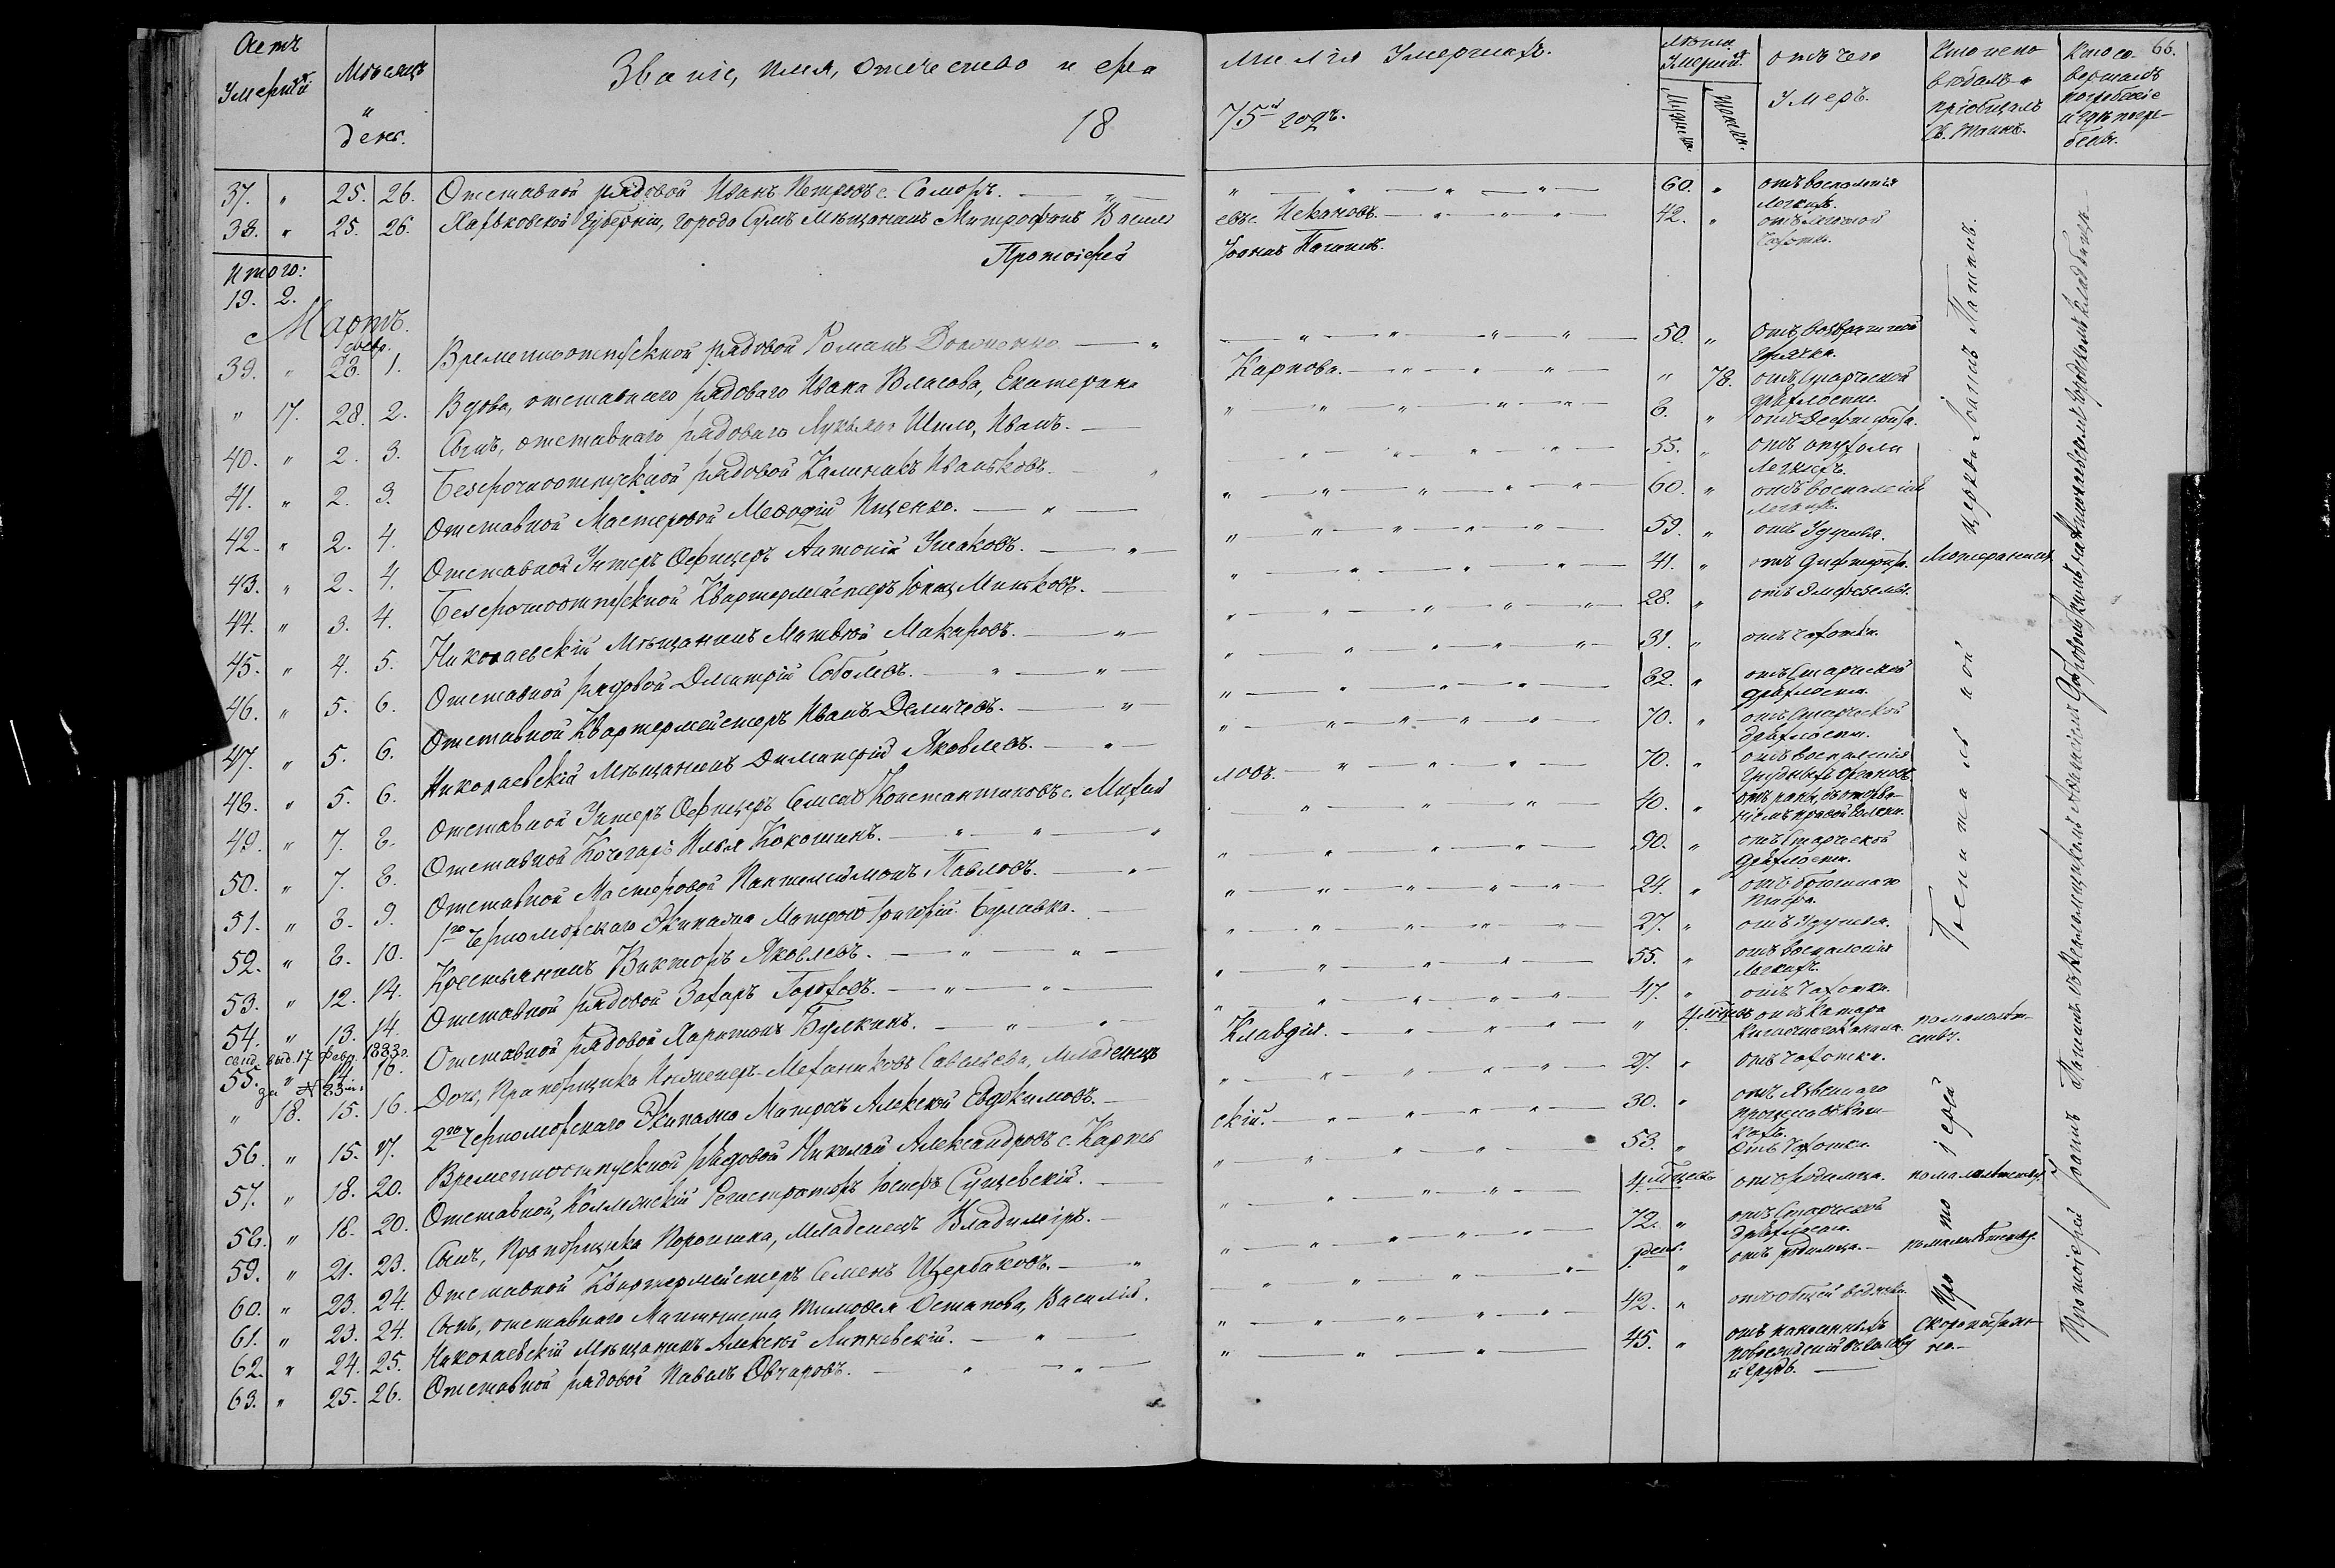 Счетъ Умершихъ. Мѣсяцъ и день. Званіе, имя, отечество и фа милія Умершихъ. Лѣта Умершихъ. Мужеска. Женска. отъ чего Умеръ. Кто исповѣдалъ и пріобщалъ Св. Таинъ. Кто совершалъ погребеніе и гдѣ погребены. 66.
18 75й годъ.
37. " 25. 26. Отставной рядовой Иванъ Петровъ с. Саморъ. 60. " отъ воспаленія легкихъ.
38. " 25. 26. Харьковской Губерніи, города Сумъ Мѣщанинъ Митрофанъ Василь евъ с. Чекановъ. 42. " отъ легочной Чахотки.
Протоіерей Іоаннъ Паншинъ.
Итого:
19. 2.
Мартъ.
февр.
39. " 28. 1. Временноотпускной рядовой Романъ 50. " отъ возвратной горячки.
" 17. 28. 2. Вдова, отставнаго рядоваго Ивана Власова, Екатерина Карпова. " 78. отъ старческой дряхлости.
40. " 2. 3. Сынъ, отставнаго рядоваго Лукьяна Шило, Иванъ. 8. " отъ Дифтерита.
41. " 2. 3. Безсрочноотпускной рядовой Калиникъ Иваньковъ. 55. " отъ опухоли легкихъ.
42. " 2. 4. Отставной Мастеровой Меѳодій Ищенко. 60. " отъ воспаленія легкихъ.
43. " 2. 4. Отставной Унтеръ Офицеръ Антоній Ушаковъ. 59. " отъ Удушья.
44. " 3. 4. Безсрочноотпускной Квартермейстеръ Миньковъ. 41. " отъ дифтерита. Лютеранинъ
45. " 4. 5. Николаевскій Мѣщанинъ Матвѣй Макаровъ. 28. " отъ Эмфиземы.
46. " 5. 6. Отставной рядовой Дмитрій Соболевъ. 31. " отъ чахотки.
47. " 5. 6. Отставной Квартермейстеръ Иванъ Демичевъ. 82. " отъ старческой дряхлости.
48. " 5. 6. Николаевскій Мѣщанинъ Димитрій Яковлевъ. 70. " отъ старческой дряхлости.
49. " 7. 8. Отставной Унтеръ Офицеръ Константиновъ с. Михай ловъ. 70. " отъ воспаленія грудныхъ органовъ
50. " 7. 8. Отставной Кочегаръ Илья Кокошинъ. 40. " отъ раны,
51. " 8. 9. Отставной Мастеровой Пантелеймонъ Павловъ. 90. " отъ старческой дряхлости.
52. " 8. 10. 1го Черноморскаго Экипажа Матросъ Григорій Булавка. 24. " отъ брюшнаго тифа.
53. " 12. 14. Крестьянинъ Викторъ Яковлевъ. 27. " отъ удушья.
54. " 13. 14. Отставной рядовой Захаръ Гороховъ. 55. " отъ воспаленія легкихъ.
свид. выд. 17 февр. 1883 г. за № 83
55. " 14. 16. Отставной рядовой Харитонъ Булкинъ. 47. " отъ чахотки.
" 18. 15. 16. Дочь, Прапорщика Инженеръ-Механиковъ Савельева, Младенецъ Клавдія. " 4 мѣсяц. отъ катара кишечнаго канала. по малолѣтству.
56. " 15. 17. 2го Черноморскаго Экипажа Матросъ Алексѣй Евдокимовъ. 27. " отъ чахотки.
57. " 18. 20. Временноотпускной рядовой Николай Александровъ с. Карпов скій. 30. " отъ язвеннаго процесса въ кишкахъ.
58. " 18. 20. Отставной, Коллежскій Регистраторъ Іосифъ Сущевскій. 53. " отъ чахотки.
59. " 21. 23. Сынъ, Прапорщика Порошка, младенецъ Владиміръ. 4 мѣсяц. отъ родимца. по малолѣтству.
60. " 23. 24. Отставной Квартермейстеръ Семенъ Щербаковъ. 72. " отъ старческой дряхлости.
61. " 23. 24. Сынъ, отставнаго Машиниста Тимоѳея Остапова, Василій. 1 день. " отъ родимца. по малолѣтству.
62. " 24. 25. Николаевскій Мѣщанинъ Алексѣй Липневскій. 42. " отъ общей водянки.
63. " 25. 26. Отставной рядовой Павелъ Овчаровъ. 45. " отъ нанесенныхъ поврежденій въ голову и грудь. скоропостижно.
Протоіерей Госпитальной церкви Іоаннъ Паншинъ.
Протоіерей Іоаннъ Паншинъ съ на городскомъ кладбищѣ